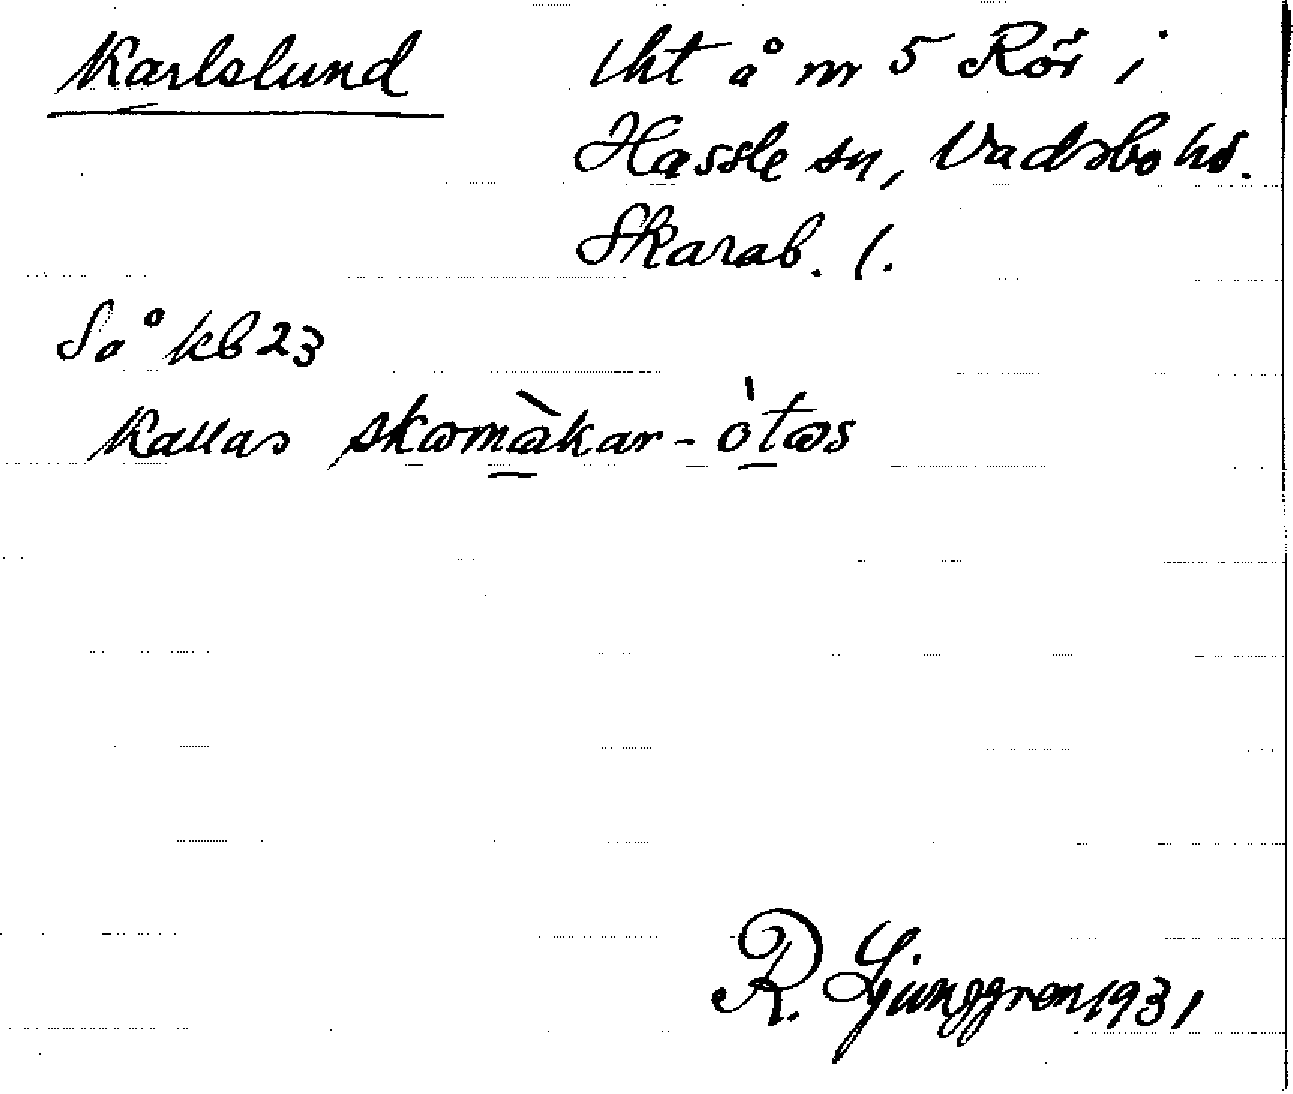 Karlslund lht å nr 5 Rör i
Hassle sn, Vadsbo hd.
Skarab. l.
So å kb 23
Kallas skomàkar-òtas
R. Ljunggren 1931